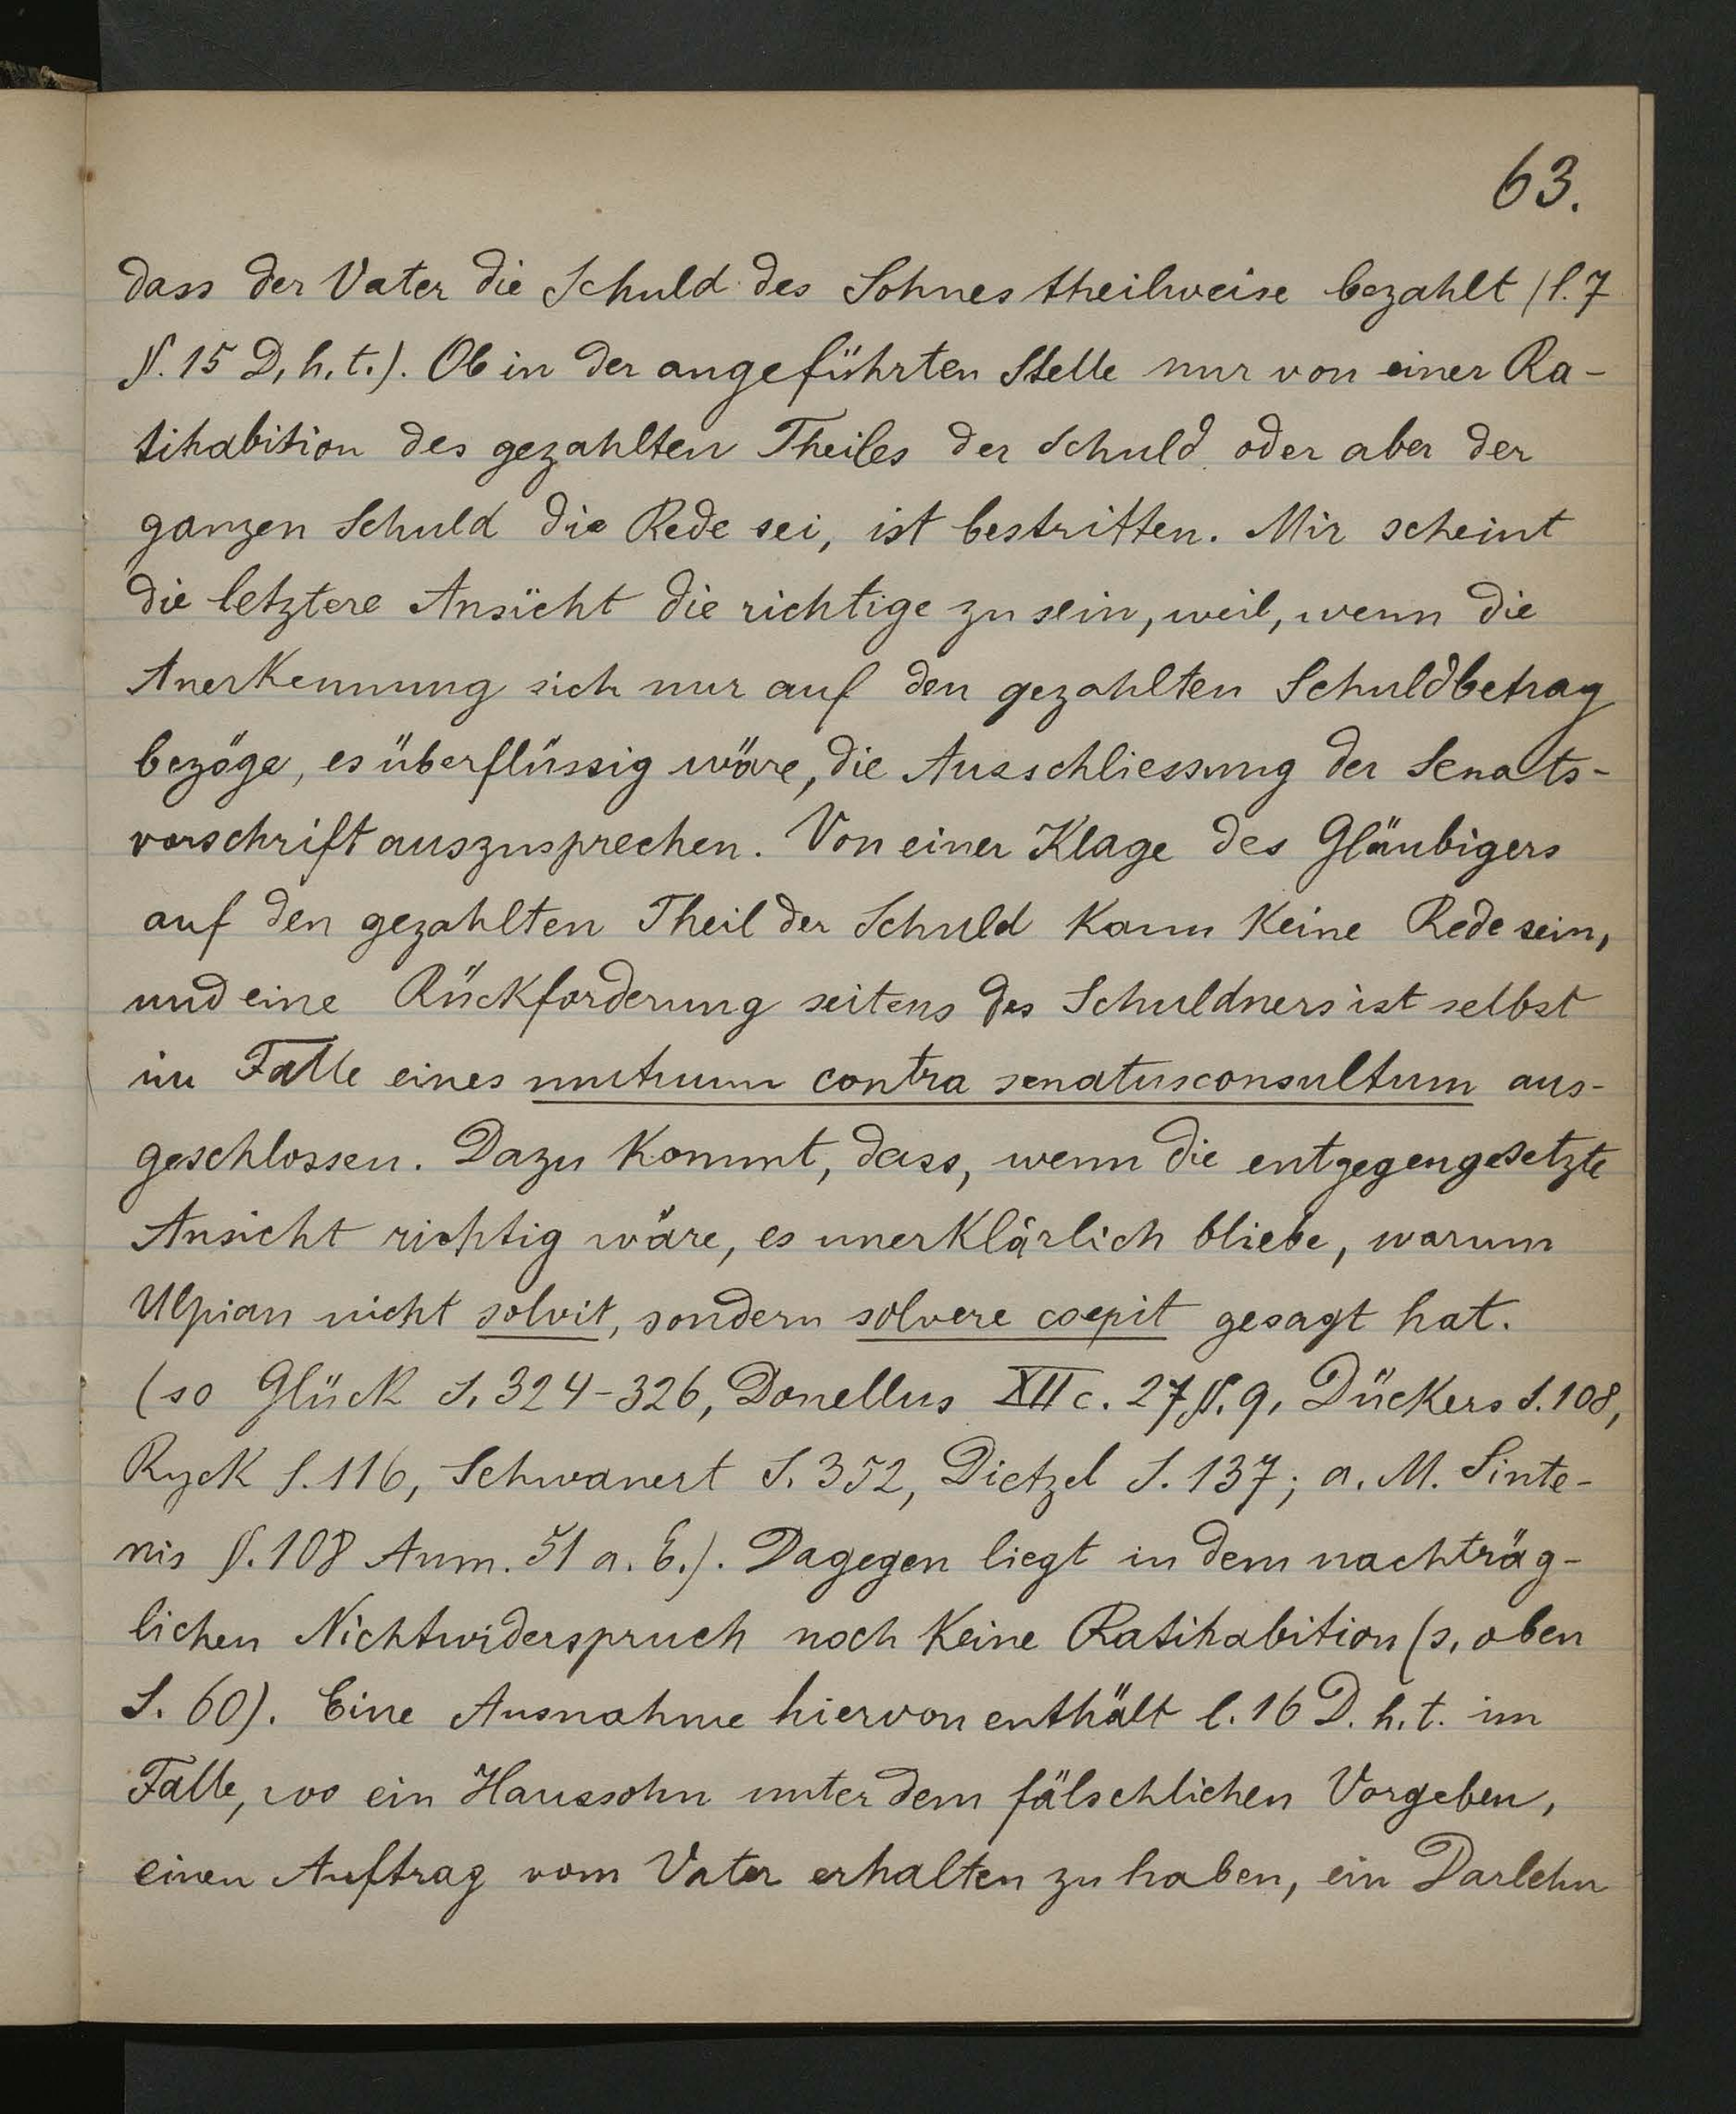 63.
dass der Vater die Schuld des Sohnes theilweise bezahlt (l. 7
§. 15 D. h. t.). Ob in der angeführten Stelle nur von einer Ra-
tihabition des gezahlten Theiles der Schuld oder aber der
ganzen Schuld die Rede sei, ist bestritten. Mir scheint
die letztere Ansicht die richtige zu sein, weil, wenn die
Anerkennung sich nur auf den gezahlten Schuldbetrag
bezöge, es überflüssig wäre, die Ausschliessung der Senats-
vorschrift auszusprechen. Von einer Klage des Gläubigers
auf den gezahlten Theil der Schuld kann keine Rede sein,
und eine Rückforderung seitens des Schuldners ist selbst
im Falle eines mutuum contra senatusconsultum aus-
geschlossen. Dazu kommt, dass, wenn die entgegengesetzte
Ansicht richtig wäre, es unerklärlich bliebe, warum
Ulpian nicht solvit, sondern solvere coepit gesagt hat.
(so Glück S. 324-326, Donellus XII c. 27 §. 9, Dückers S. 108,
Ryck S. 116, Schwanert S. 352, Dietzel S. 137; a. M. Sinte-
nis §. 108 Anm. 51 a. E.). Dagegen liegt in dem nachträg-
lichen Nichtwiderspruch noch keine Ratihabition (s. oben
S. 60). Eine Ausnahme hiervon enthält l. 16 D. h. t. im
Falle, wo ein Haussohn unter dem fälschlichen Vorgeben,
einen Auftrag vom Vater erhalten zu haben, ein Darlehn